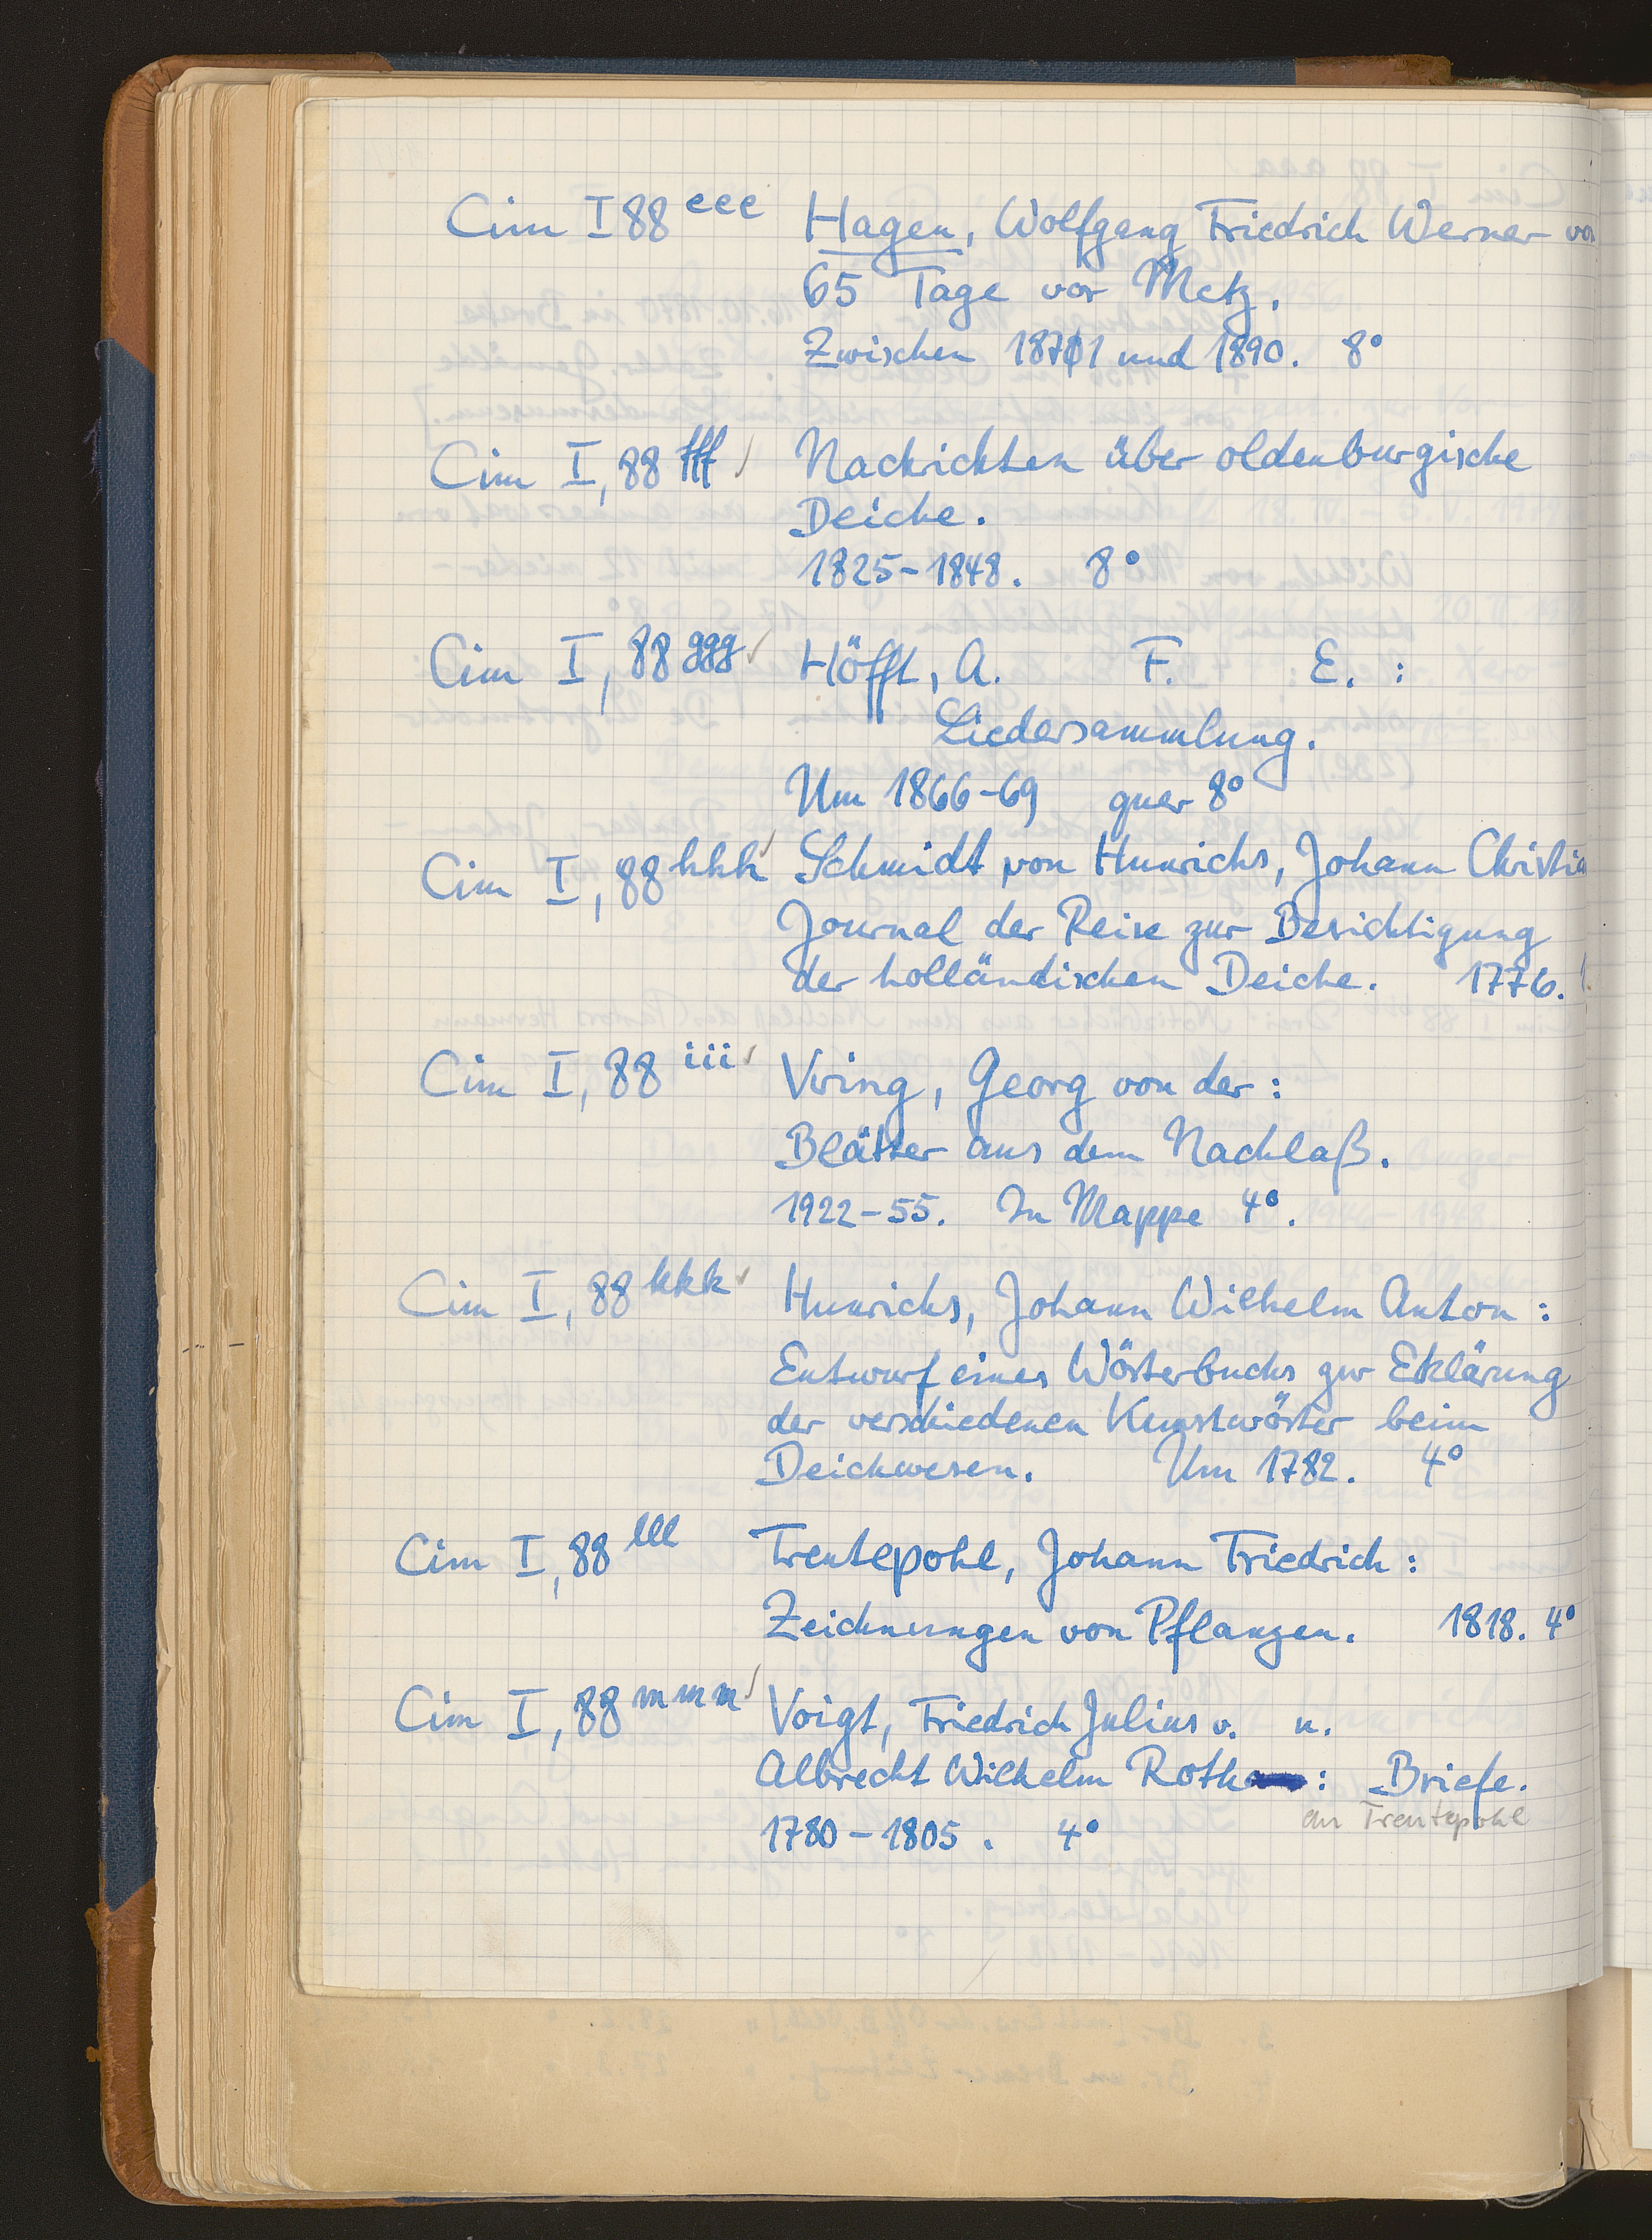 Cim I 88 eee Hagen, Wolfgang Friedrich Werner vo
65 Tage vor Metz.
Zwischen 1871 und 1890. 8°
Cim I, 88 fff Nachrichten über oldenburgische
Deiche.
1825-1848. 8°
Cim I, 88 ggg Höfft, A. F. E. :
Liedersammlung.
Um 1866-69 quer 8°
Cim I, 88 hhh Schmidt von Hunrichs, Johann Christia
Journal der Reise zur Besichtigung
der holländischen Deiche. 1776.
Cim I, 88 iii Vring, Georg von der :
Blätter aus dem Nachlaß.
1922-55. In Mappe 4°.
Cim I, 88 kkk Hunrichs, Johann Wilhelm Anton :
Entwurf eines Wörterbuchs zur Erklärung
der verschiedenen Kunstwörter beim
Deichwesen. Um 1782. 4°
Cim I, 88 lll Trentepohl, Johann Friedrich :
Zeichnungen von Pflanzen. 1818. 4°
Cim I, 88 mmm Voigt, Friedrich Julius v. u.
Albrecht Wilhelm Roth : Briefe.
an Trentepohl
1780-1805. 4°